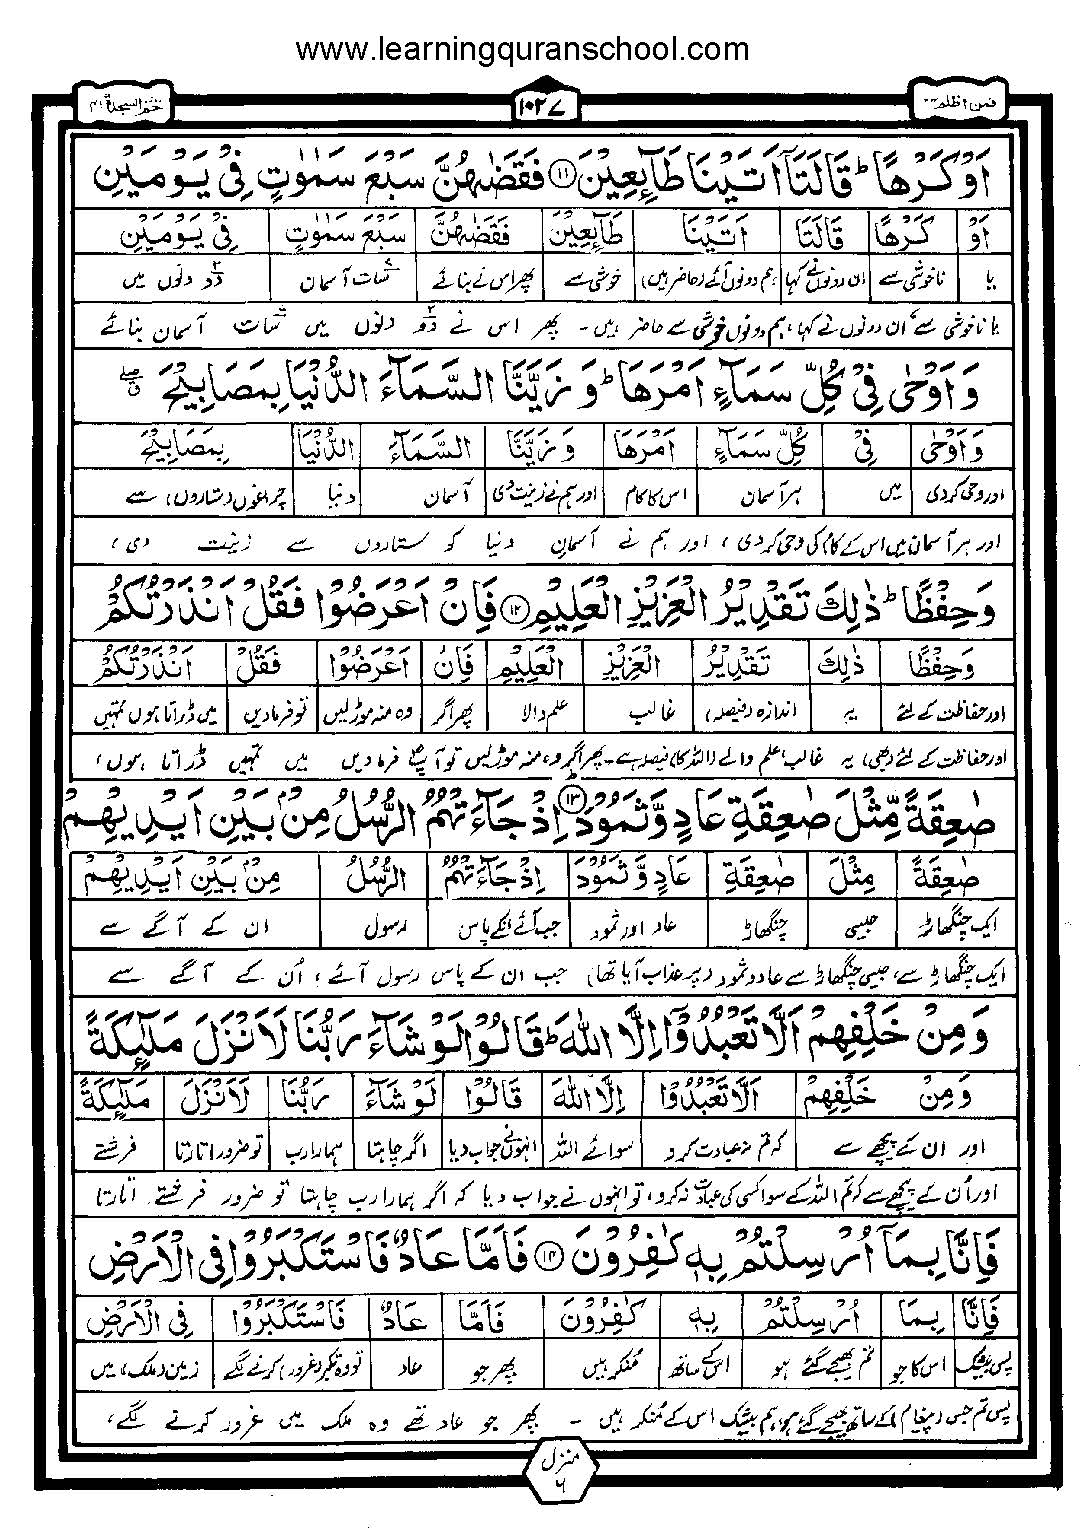 www.learningquranschool.com
حٰمٓ السجدۃ ۴۱
۱۰۲۷
فمن اظلم ۲۴
اَوْ كَرْهًا ؕ قَالَتَاۤ اَتَيْنَا طَآىِٕعِيْنَ ۱۱ فَقَضٰىهُنَّ سَبْعَ سَمٰوٰتٍ فِيْ يَوْمَيْنِ
اَوْ كَرْهًا قَالَتَا اَتَيْنَا طَآىِٕعِيْنَ فَقَضٰىهُنَّ سَبْعَ سَمٰوٰتٍ فِيْ يَوْمَيْنِ
یا ناخوشی سے ان دونوں نے کہا ہم دونوں آئے (حاضر ہیں) خوشی سے پھر اس نے بنائے سات آسمان دو دنوں میں
یا ناخوشی سے، ان دونوں نے کہا، ہم دونوں خوشی سے حاضر ہیں۔ پھر اس نے دو دنوں میں سات آسمان بنائے
وَ اَوْحٰى فِيْ كُلِّ سَمَآءٍ اَمْرَهَا ؕ وَ زَيَّنَّا السَّمَآءَ الدُّنْيَا بِمَصَابِيْحَ
وَ اَوْحٰى فِيْ كُلِّ سَمَآءٍ اَمْرَهَا وَ زَيَّنَّا السَّمَآءَ الدُّنْيَا بِمَصَابِيْحَ
اور وحی کردی میں ہر آسمان اس کا کام اور ہم نے زینت دی آسمان دنیا چراغوں (ستاروں) سے
اور ہر آسمان میں اس کے کام کی وحی کردی، اور ہم نے آسمانِ دنیا کو ستاروں سے زینت دی،
وَ حِفْظًا ؕ ذٰلِكَ تَقْدِيْرُ الْعَزِيْزِ الْعَلِيْمِ ۱۲ فَاِنْ اَعْرَضُوْا فَقُلْ اَنْذَرْتُكُمْ
وَ حِفْظًا ذٰلِكَ تَقْدِيْرُ الْعَزِيْزِ الْعَلِيْمِ فَاِنْ اَعْرَضُوْا فَقُلْ اَنْذَرْتُكُمْ
اور حفاظت کے لئے یہ اندازہ (فیصلہ) غالب علم والا پھر اگر وہ منہ موڑلیں تو فرمادیں میں ڈراتا ہوں تمہیں
اور حفاظت کے لئے (بھی) یہ غالب، علم والے (اللہ) کا فیصلہ ہے۔ پھر اگر وہ منہ موڑلیں تو آپ فرمادیں میں تمہیں ڈراتا ہوں،
صٰعِقَةً مِّثْلَ صٰعِقَةِ عَادٍ وَّ ثَمُوْدَ ۱۳ اِذْ جَآءَتْهُمُ الرُّسُلُ مِنْۢ بَيْنِ اَيْدِيْهِمْ
صٰعِقَةً مِّثْلَ صٰعِقَةِ عَادٍ وَّ ثَمُوْدَ اِذْ جَآءَتْهُمُ الرُّسُلُ مِنْۢ بَيْنِ اَيْدِيْهِمْ
ایک چنگھاڑ جیسی چنگھاڑ عاد اور ثمود جب آئے انکے پاس رسول ان کے آگے سے
ایک چنگھاڑ سے، جیسی چنگھاڑ سے عاد و ثمود (پر عذاب آیا تھا) جب ان کے پاس رسول آئے، اُن کے آگے سے
وَ مِنْ خَلْفِهِمْ اَلَّا تَعْبُدُوْۤا اِلَّا اللّٰهَ ؕ قَالُوْا لَوْ شَآءَ رَبُّنَا لَاَنْزَلَ مَلٰٓىِٕكَةً
وَ مِنْ خَلْفِهِمْ اَلَّا تَعْبُدُوْا اِلَّا اللّٰهَ قَالُوْا لَوْ شَآءَ رَبُّنَا لَاَنْزَلَ مَلٰٓىِٕكَةً
اور ان کے پیچھے سے کہ تم نہ عبادت کرو سوائے اللہ انہوں نے جواب دیا اگر چاہتا ہمارا رب تو ضرور اتارتا فرشتے
اور اُن کے پیچھے سے کہ تم اللہ کے سوا کسی کی عبادت نہ کرو، تو انہوں نے جواب دیا کہ اگر ہمارا رب چاہتا تو ضرور فرشتے اتارتا
فَاِنَّا بِمَاۤ اُرْسِلْتُمْ بِهٖ كٰفِرُوْنَ ۱۴ فَاَمَّا عَادٌ فَاسْتَكْبَرُوْا فِي الْاَرْضِ
فَاِنَّا بِمَا اُرْسِلْتُمْ بِهٖ كٰفِرُوْنَ فَاَمَّا عَادٌ فَاسْتَكْبَرُوْا فِي الْاَرْضِ
پس بیشک ہم اس کا جو تم بھیجے گئے ہو اس کے ساتھ منکر ہیں پھر جو عاد تو وہ تکبر (غرور) کرنے لگے زمین (ملک) میں
پس تم جس (پیغام) کے ساتھ بھیجے گئے ہو، ہم بیشک اس کے منکر ہیں۔ پھر جو عاد تھے وہ ملک میں غرور کرنے لگے،
منزل
۶